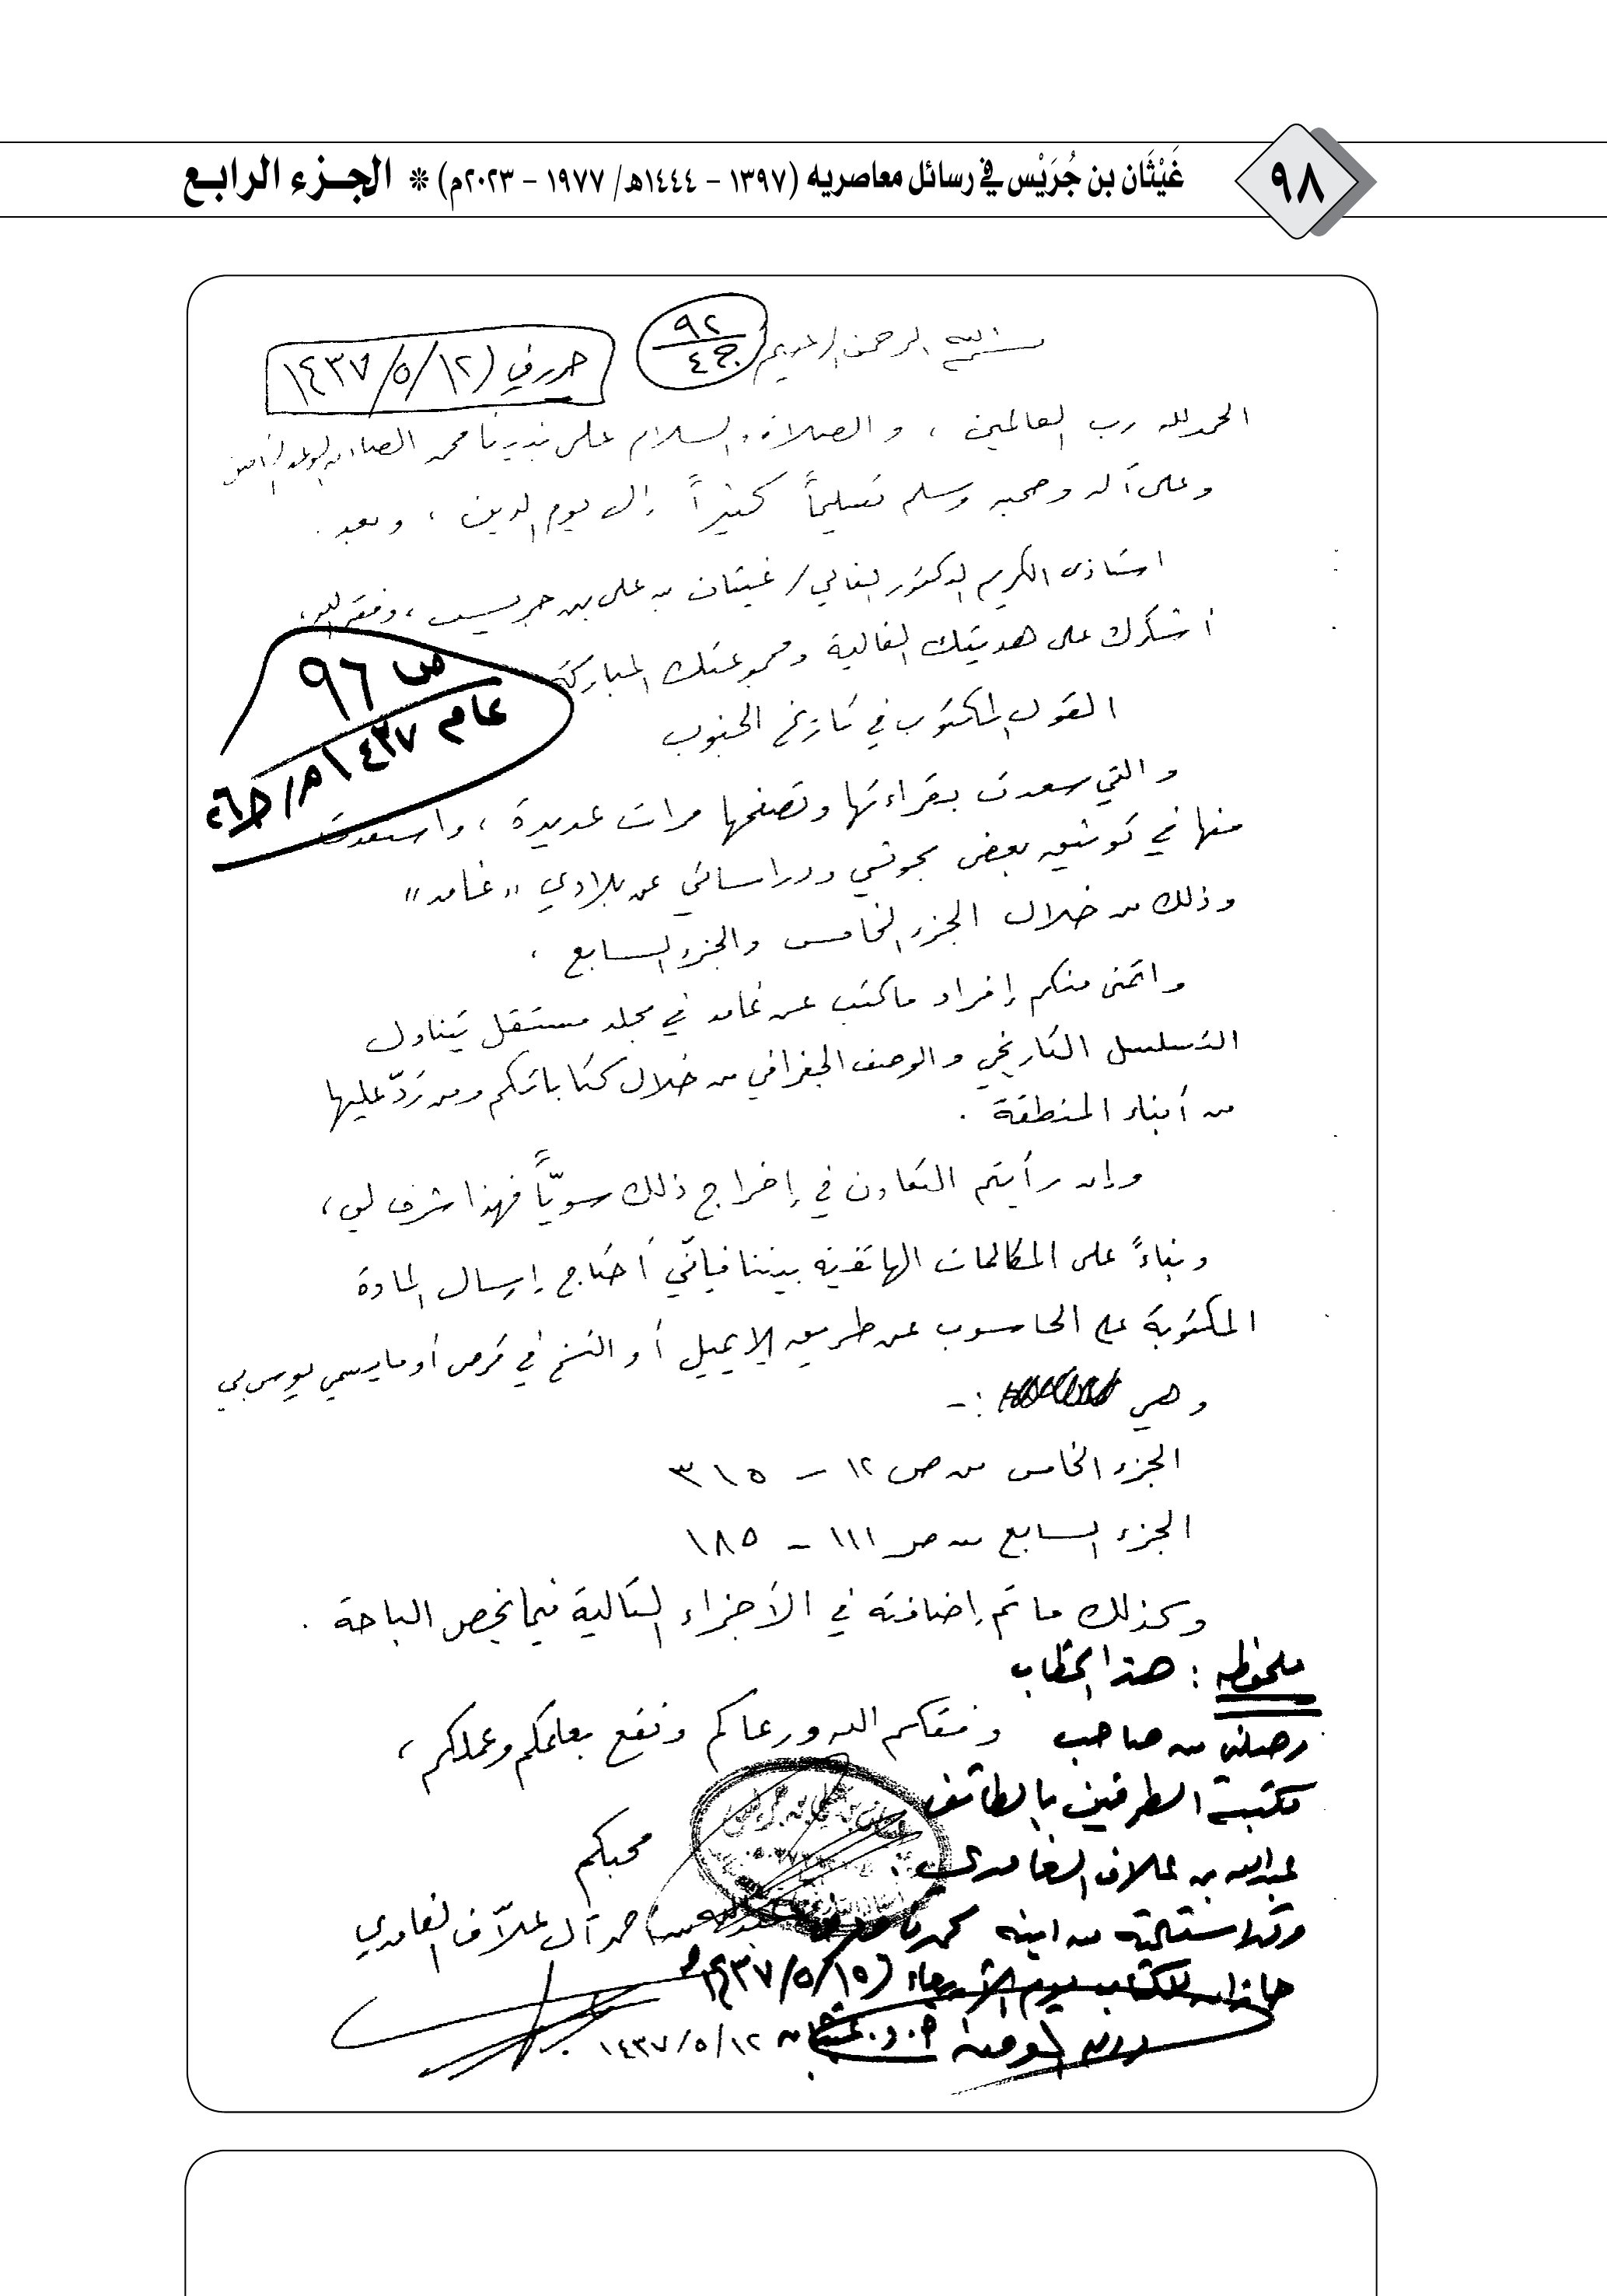 ٩٨
غَيْثَان بن جُرَيْس في رسائل معاصريه (١٣٩٧ - ١٤٤٤هـ/ ١٩٧٧ - ٢٠٢٣م) ❊ الجزء الرابع
بسم الله الرحمن الرحيم
٩٢
ج٤
حرر في (١٢/٥/١٤٣٧
الحمد لله رب العالمين ، والصلاة والسلام على نبينا محمد الصادق الوعد الأمين
وعلى آله وصحبه وسلم تسليماً كثيراً إلى يوم الدين ، وبعد .
استاذي الكريم الدكتور الغالي / غيثان بن علي بن جريس ، وفقه الله ،
أشكرك على هديتك الغالية ومجموعتك المباركة
ص ٩٦
عام ١٤٣٧هـ/
القول المكتوب في تاريخ الجنوب
والتي سعدت بقراءتها وتصفحها مرات عديدة ، واستفدت
منها في توثيق بعض بحوثي ودراساتي عن بلادي "غامد"
وذلك من خلال الجزء الخامس والجزء السابع .
واتمنى منكم إفراد ما كتب عن غامد في مجلد مستقل يتناول
التسلسل التاريخي والوصف الجغرافي من خلال كتاباتكم ومن ردّ عليها
من أبناء المنطقة .
وإن رأيتم التعاون في إخراج ذلك سويّاً فهذا شرف لي ،
وبناءً على المكالمات الهاتفية بيننا فإنّي أحتاج إرسال المادة
المكتوبة على الحاسوب عن طريق الإيميل أو النسخ في قرص أو ما يسمى يو سي بي
وهي :-
الجزء الخامس من ص ١٢ - ٣١٥
الجزء السابع من ص ١١١ - ١٨٥
وكذلك ما تم إضافته في الأجزاء التالية فيما يخص الباحة .
ملحوظه : هذا الخطاب
وفقكم الله ورعاكم ونفع بعلمكم وعملكم ،
وصلني من صاحب
مكتبة الطرفين بالطائف
محبكم
عبدالله بن علاف الغامدي .
أحمد آل علاّف الغامدي
وقد استلمته من ابنه محمد
يوم الأربعاء (١٥/٥/١٤٣٧هـ
أ.د. غيثان
١٢/٥/١٤٣٧